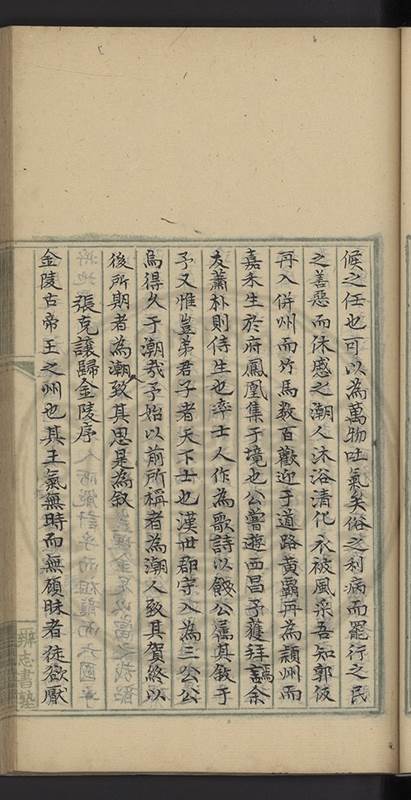 候之任也可以為萬物吐氣矣俗之利病而罷行之民
之善惡而休感之潮人沐浴清化衣被風采吾知郭伋
再入併州而竹馬数百歡迎于道路黄霸再為頴州而
嘉禾生於府鳳凰集于境也公曽遊西昌予獲拜謁余
友蕭朴則侍生也率士人作為歌詩以餞公屬其敘于
予又惟豈弟君子者天下士也漢世郡守入為三公公
焉得久于潮哉予始以前所稱者為潮人致其賀終以
後所期者為潮致其思是為叙
張克讓歸金陵序
金陵古帝王之州也其王氣無時而無頋昧者徒欲厭
辨志書塾